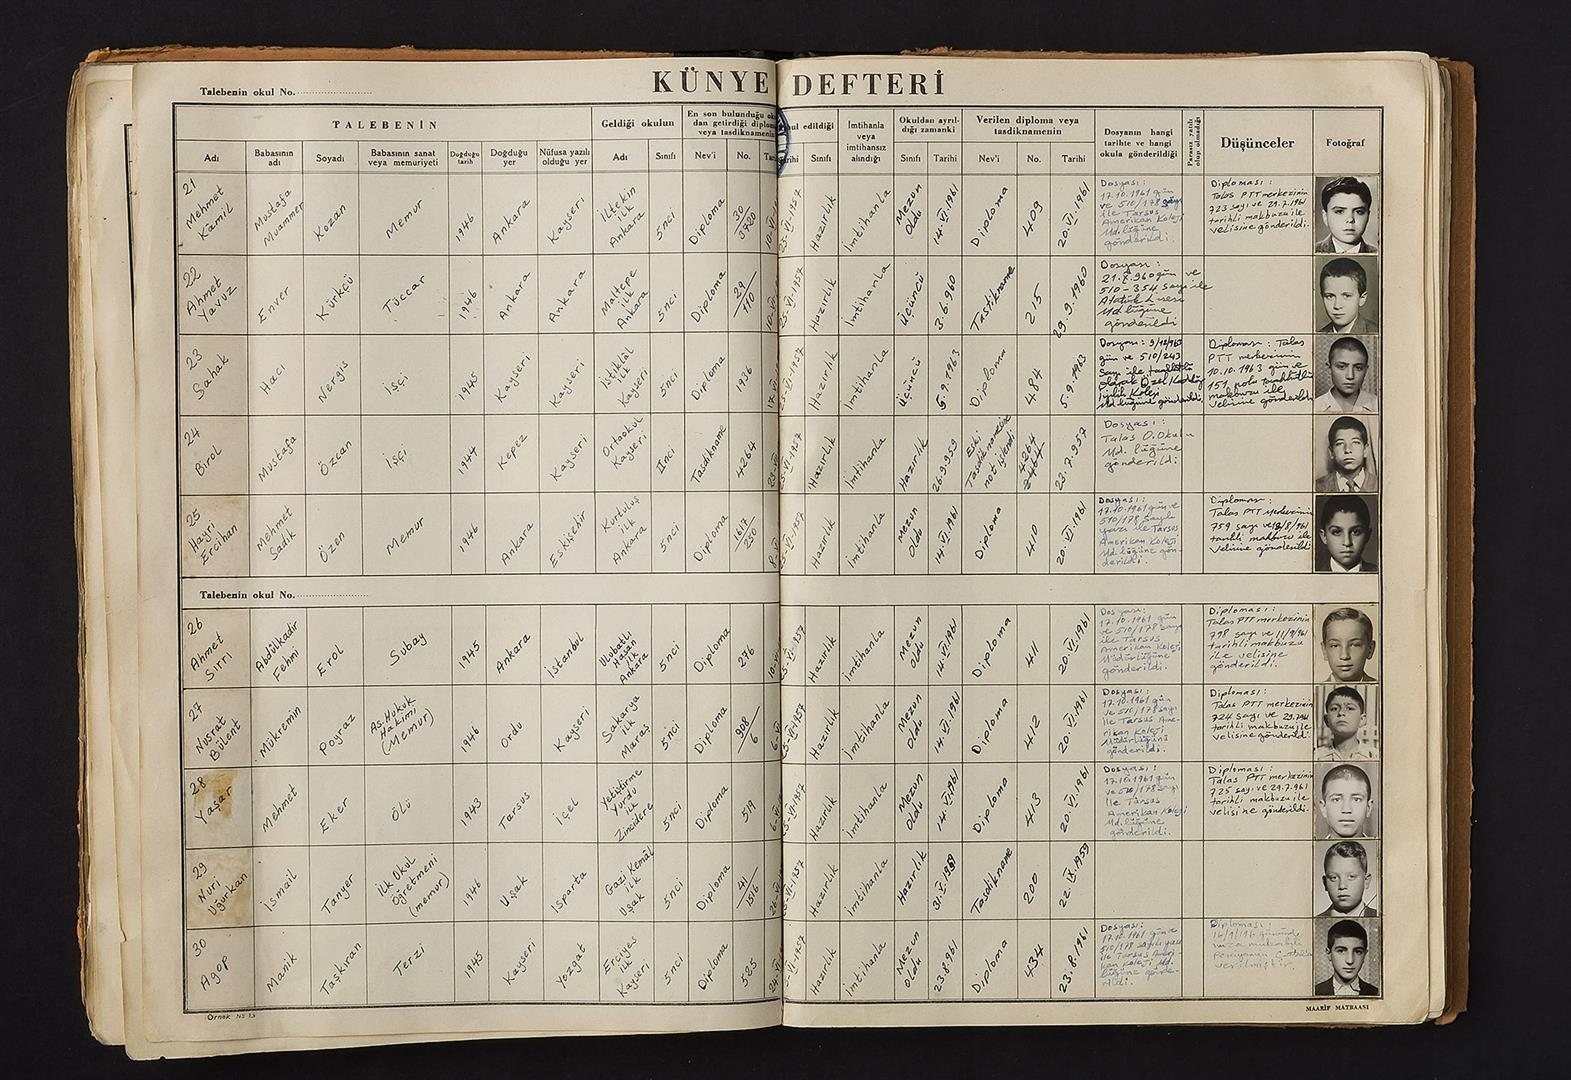 KÜNYE DEFTERİ
Talebenin okul No.
TALEBENİN
Geldiği okulun
En son bulunduğu oku
dan getirdiği diploma
veya tasdiknamenin
ul edildiği
İmtihanla
veya
imtihansız
alındığı
Okuldan ayrıl-
dığı zamanki
Verilen diploma veya
tasdiknamenin
Dosyanın hangi
tarihte ve hangi
okula gönderildiği
Parasız yatılı
olup olmadığı
Düşünceler
Fotoğraf
Adı
Babasının
adı
Soyadı
Babasının sanat
veya memuriyeti
Doğduğu
tarih
Doğduğu
yer
Nüfusa yazılı
olduğu yer
Adı
Sınıfı
Nev'i
No.
Tarihi
Sınıfı
Sınıfı
Tarihi
Nev'i
No.
Tarihi
21
Mehmet
Kâmil
Mustafa
Muammer
Kozan
Memur
1946
Ankara
Kayseri
İltekin
ilk
Ankara
5nci
Diploma
30
3720
Hazırlık
İmtihanla
Mezun
Oldu
14.VI.1961
Diploma
409
20.VI.1961
Dosyası:
17.10.1961 gün
ve 510/178 sayı
ile Tarsus
Amerikan Koleji
Md.lüğüne
gönderildi.
Diploması:
Talas PTT merkezinin
723 sayı ve 29.7.961
tarihli makbuzu ile
velisine gönderildi.
22
Ahmet
Yavuz
Enver
Kürkçü
Tüccar
1946
Ankara
Ankara
Maltepe
ilk
Ankara
5nci
Diploma
29
110
Hazırlık
İmtihanla
üçüncü
3.6.960
Tastikname
215
29.9.1960
Dosyası:
21.X.960 gün ve
510-354 sayı ile
Atatürk Lisesi
Md.lüğüne
gönderildi
23
Sahak
Hacı
Nergis
İşçi
1945
Kayseri
Kayseri
İstiklâl
ilk
Kayseri
5nci
Diploma
1936
Hazırlık
İmtihanla
üçüncü
5.9.1963
Diploma
484
5.9.1963
Dosyası: 9/12/963
gün ve 510/243
sayı ile taahhütlü
olarak Özel Kadıköy
Koleji
Md.lüğüne gönderildi.
Diploması: Talas
PTT merkezinin
10.10.1963 gün ve
151 nolu taahhütlü
makbuzu ile
velisine gönderildi
24
Birol
Mustafa
Özcan
İşçi
1944
Kepez
Kayseri
Ortaokul
Kayseri
IInci
Tasdikname
4264
Hazırlık
İmtihanla
Hazırlık
26.9.959
Eski
Tasdiknamesine
not işlendi
4264
23.7.957
Dosyası:
Talas O.Okulu
Md.lüğüne
gönderildi
25
Hayri
Ercihan
Mehmet
Sadık
Özen
Memur
1946
Ankara
Eskişehir
Kurtuluş
ilk
Ankara
5nci
Diploma
1617
250
Hazırlık
İmtihanla
Mezun
Oldu
14.VI.1961
Diploma
410
20.VI.1961
Dosyası:
17.10.1961 gün ve
510/178 sayılı
yazı ile Tarsus
Amerikan Koleji
Md.lüğüne gön-
derildi.
Diploması:
Talas PTT Merkezinin
759 sayı ve 18/8/961
tarihli makbuzu ile
velisine gönderildi
Talebenin okul No.
26
Ahmet
Sırrı
Abdülkadir
Fehmi
Erol
Subay
1945
Ankara
İstanbul
Ulubatlı
Hasan
ilk
Ankara
5nci
Diploma
276
Hazırlık
İmtihanla
Mezun
Oldu
14.VI.1961
Diploma
411
20.VI.1961
Dosyası:
17.10.1961 gün
ve 510/178 sayı
ile Tarsus
Amerikan Koleji
Müdürlüğüne
gönderildi.
Diploması:
Talas PTT merkezinin
798 sayı ve 11/9/961
tarihli makbuzu
ile velisine
gönderildi.
27
Nusrat
Bülent
Mükremin
Poyraz
As. Hukuk
Hakimi
(Memur)
1946
Ordu
Kayseri
Sakarya
ilk
Maraş
5nci
Diploma
908
6
Hazırlık
İmtihanla
Mezun
Oldu
14.VI.1961
Diploma
412
20.VI.1961
Dosyası:
17.10.1961 gün
ve 510/178 sayı
ile Tarsus Ame-
rikan Koleji
Müdürlüğüne
gönderildi.
Diploması:
Talas PTT merkezinin
724 sayı ve 29.7.961
tarihli makbuzu ile
velisine gönderildi.
28
Yaşar
Mehmet
Eker
ÖLÜ
1943
Tarsus
İçel
Yetiştirme
Yurdu
ilk
Zincidere
5nci
Diploma
519
Hazırlık
İmtihanla
Mezun
Oldu
14.VI.1961
Diploma
413
20.VI.1961
Dosyası:
17.10.1961 gün
ve 510/178 sayı
ile Tarsus
Amerikan Koleji
Md.lüğüne
gönderildi.
Diploması:
Talas PTT merkezinin
725 sayı ve 29.7.961
tarihli makbuzu ile
velisine gönderildi.
29
Nuri
Uğurkan
İsmail
Tanyer
İlk Okul
Öğretmeni
(memur)
1946
Uşak
Isparta
Gazi Kemâl
ilk
Uşak
5nci
Diploma
41
1516
Hazırlık
İmtihanla
Hazırlık
31.V.1959
Tasdikname
200
22.IX.1959
30
Agop
Manik
Taşkıran
Terzi
1945
Kayseri
Yozgat
Erciyes
ilk
Kayseri
5nci
Diploma
585
Hazırlık
İmtihanla
Mezun
oldu
23.8.961
Diploma
434
23.8.1961
Dosyası:
17.10.1961 gün ve
510/178 sayılı yazı
ile Tarsus Ameri-
kan Koleji Md.
lüğüne gönde-
rildi.
Diploması:
imza mukabili
verilmiştir.
Örnek No 13
MAARİF MATBAASI